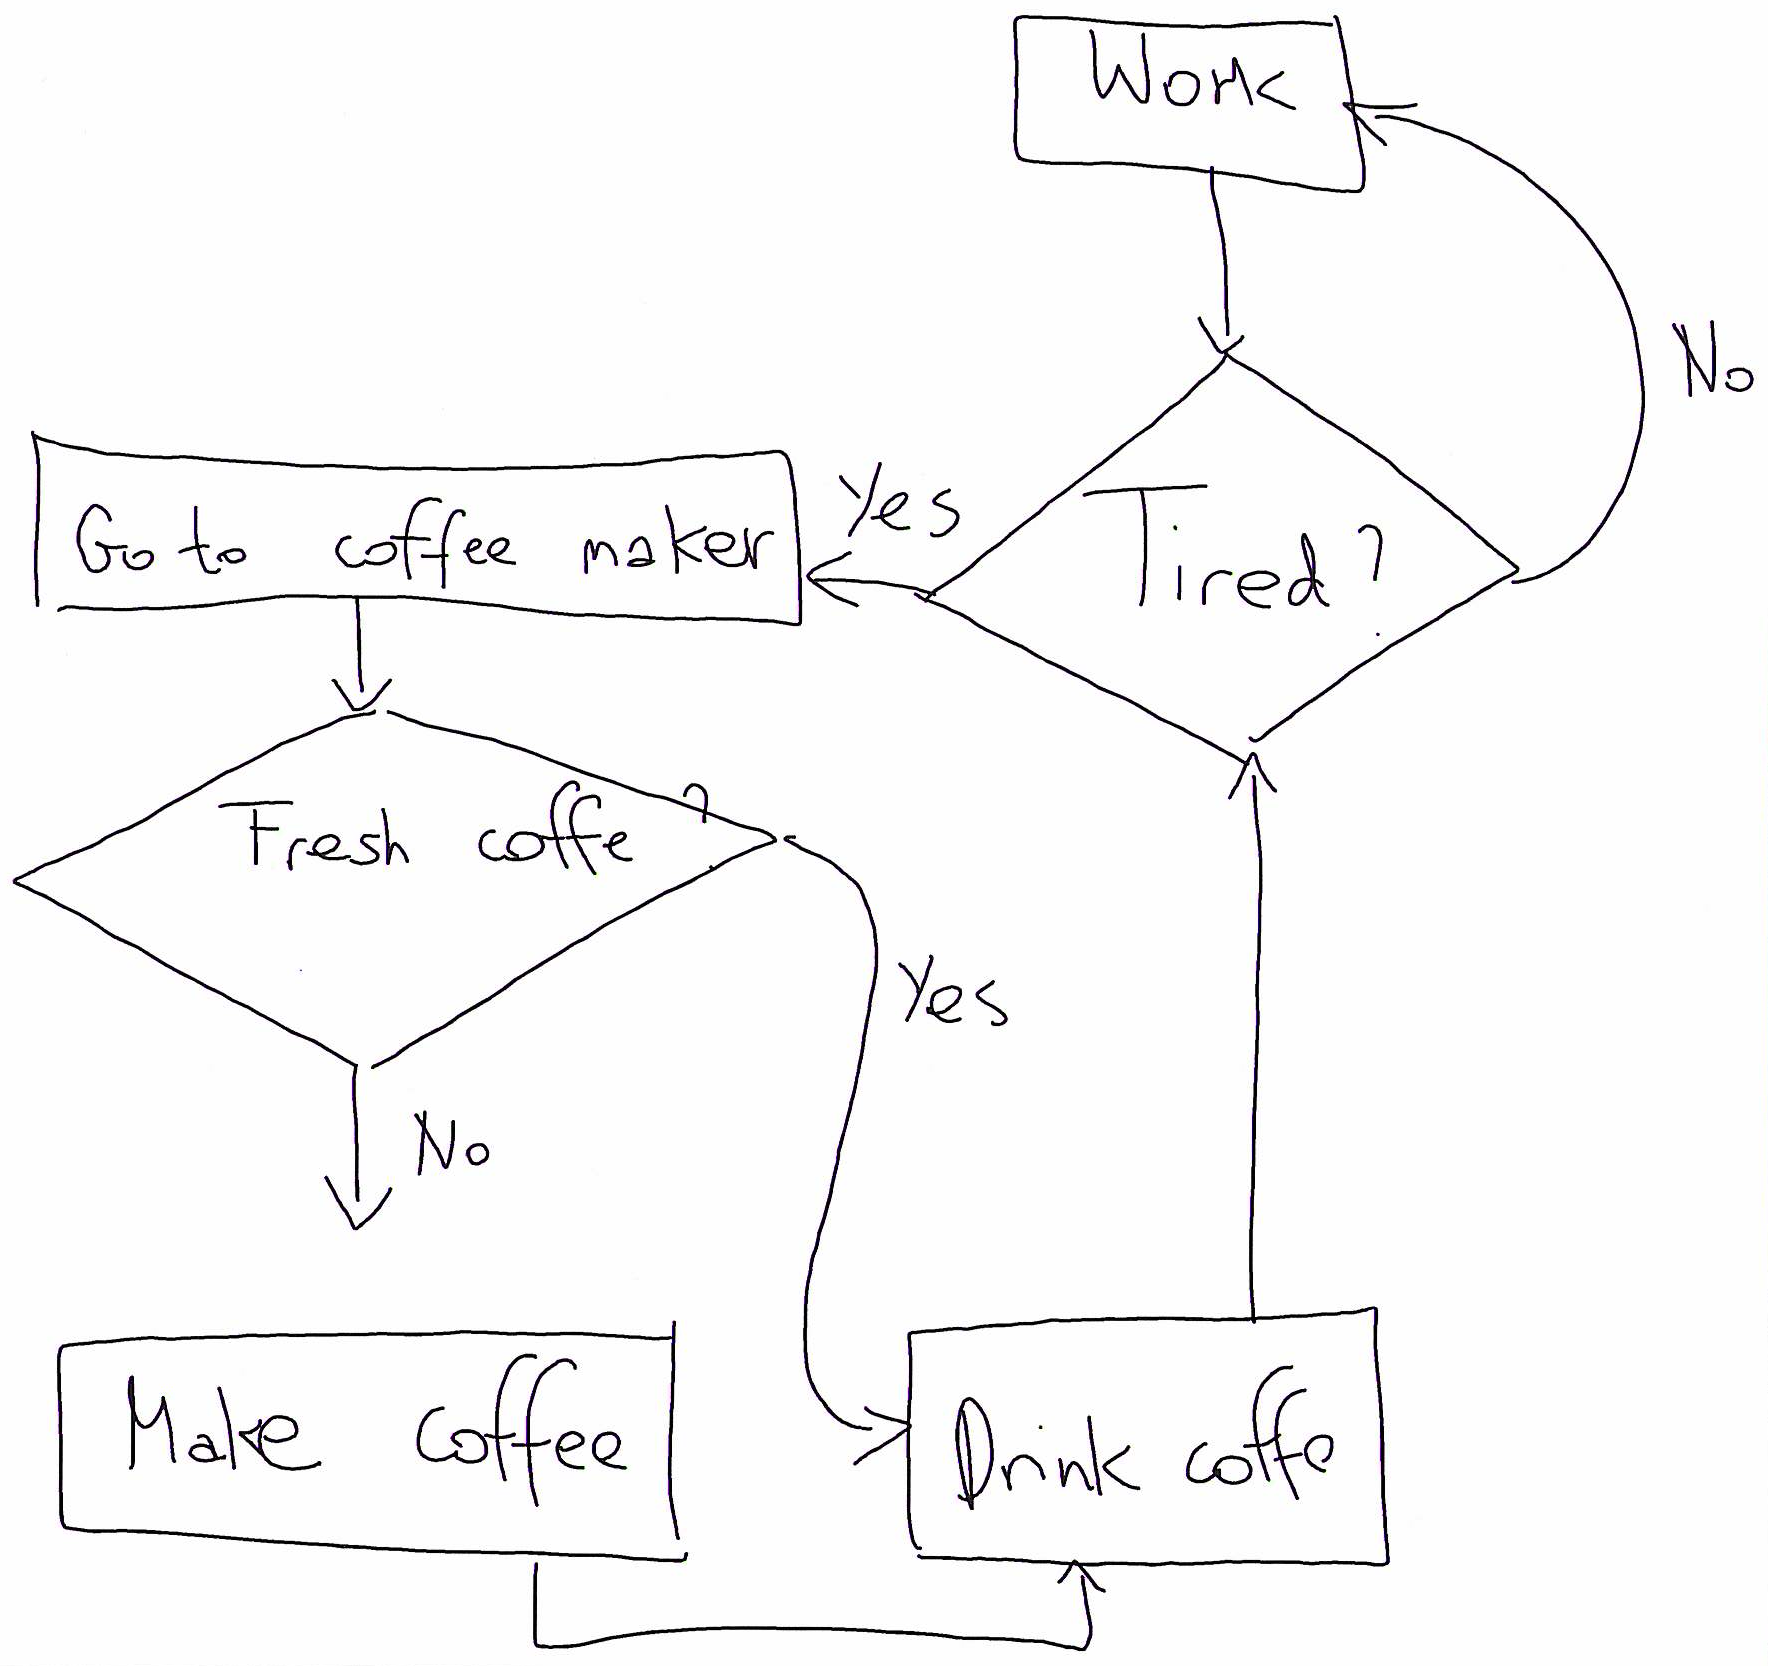 Work
No
Yes
Tired?
Go to coffee maker
Fresh coffe ?
Yes
No
Make coffee
Drink coffe